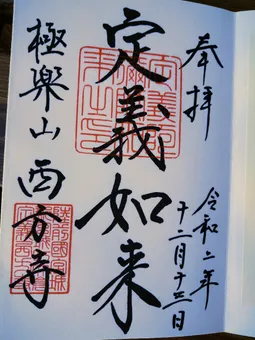 奉拝
令和二年
十二月十三日
定義如来
極楽山西方寺